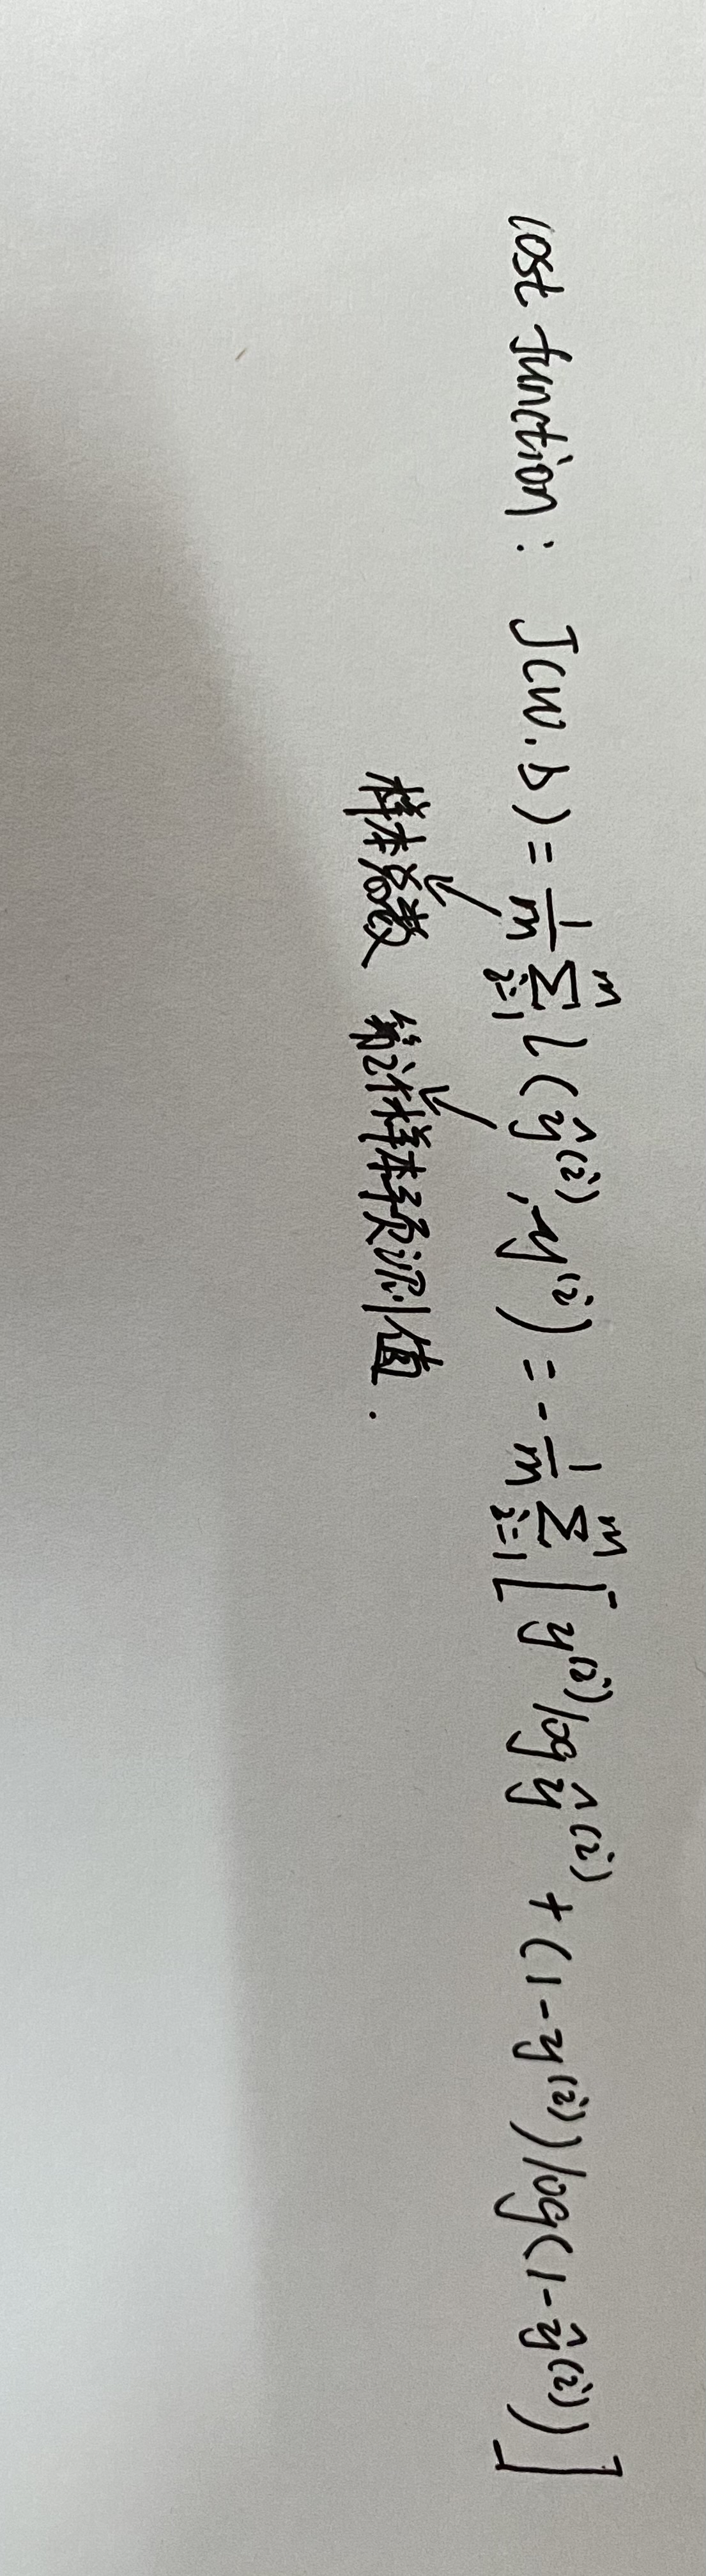 cost function: J(w.b) = \frac{1}{m} \sum_{i=1}^{m} l(\hat{y}^{(i)}, y^{(i)}) = -\frac{1}{m} \sum_{i=1}^{m} [y^{(i)} log \hat{y}^{(i)} + (1-y^{(i)}) log(1-\hat{y}^{(i)})]
样本总数 第i个样本预测值.